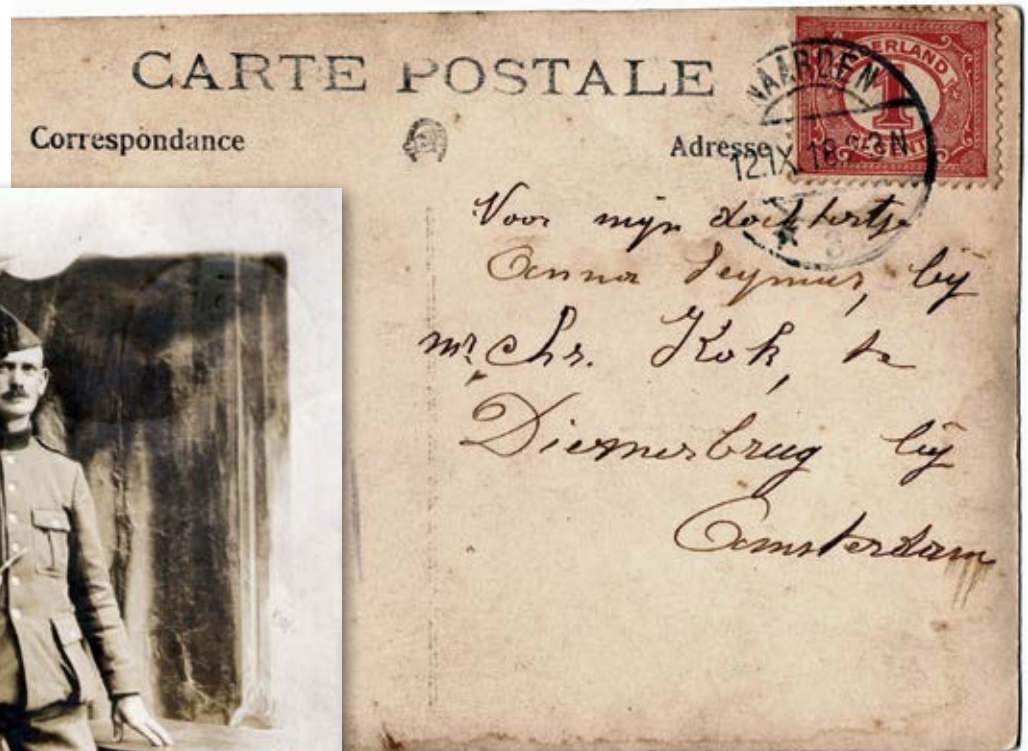 CARTE POSTALE
Correspondance
Adresse
NAARDEN
12.IX.18 2-3N
NEDERLAND
1
CENT
Voor mijn dochtertje
Anna Seymus, bij
mr Chr. Kok, te
Diemerbrug bij
Amsterdam